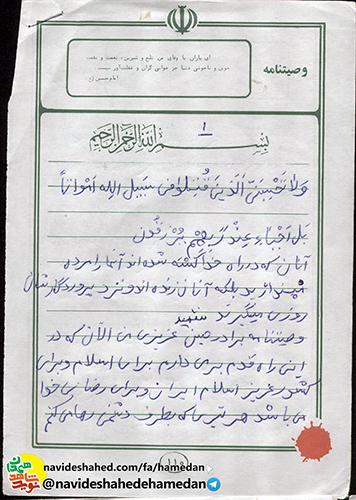 وصیتنامه
ای یاران با وفای من تلخ و شیرین، نعمت و نقمت
خوشی و ناخوشی دنیا جز خوابی گران و غفلت‌آور نیست
امام حسین (ع)
۱
بسم الله الرحمن الرحیم
ولا تحسبن الذین قتلوا فی سبیل الله امواتاً
بل احیاء عند ربهم یرزقون
آنان که در راه خدا کشته شده‌اند آنها را مرده
مپندارید بلکه آنان زنده‌اند و نزد پروردگارشان
روزی میگیرند شهید
وصیتنامه برادر من عزیزی من الآن که در
این راه قدم برمی دارم برای اسلام و برای
کشور عزیز اسلام ایران و برای رضای خدا
می باشد هر تیری که بطرف دشمن رها می‌کنم
(۱۱۱)
navideshahed.com/fa/hamedan
@navideshahedehamedan